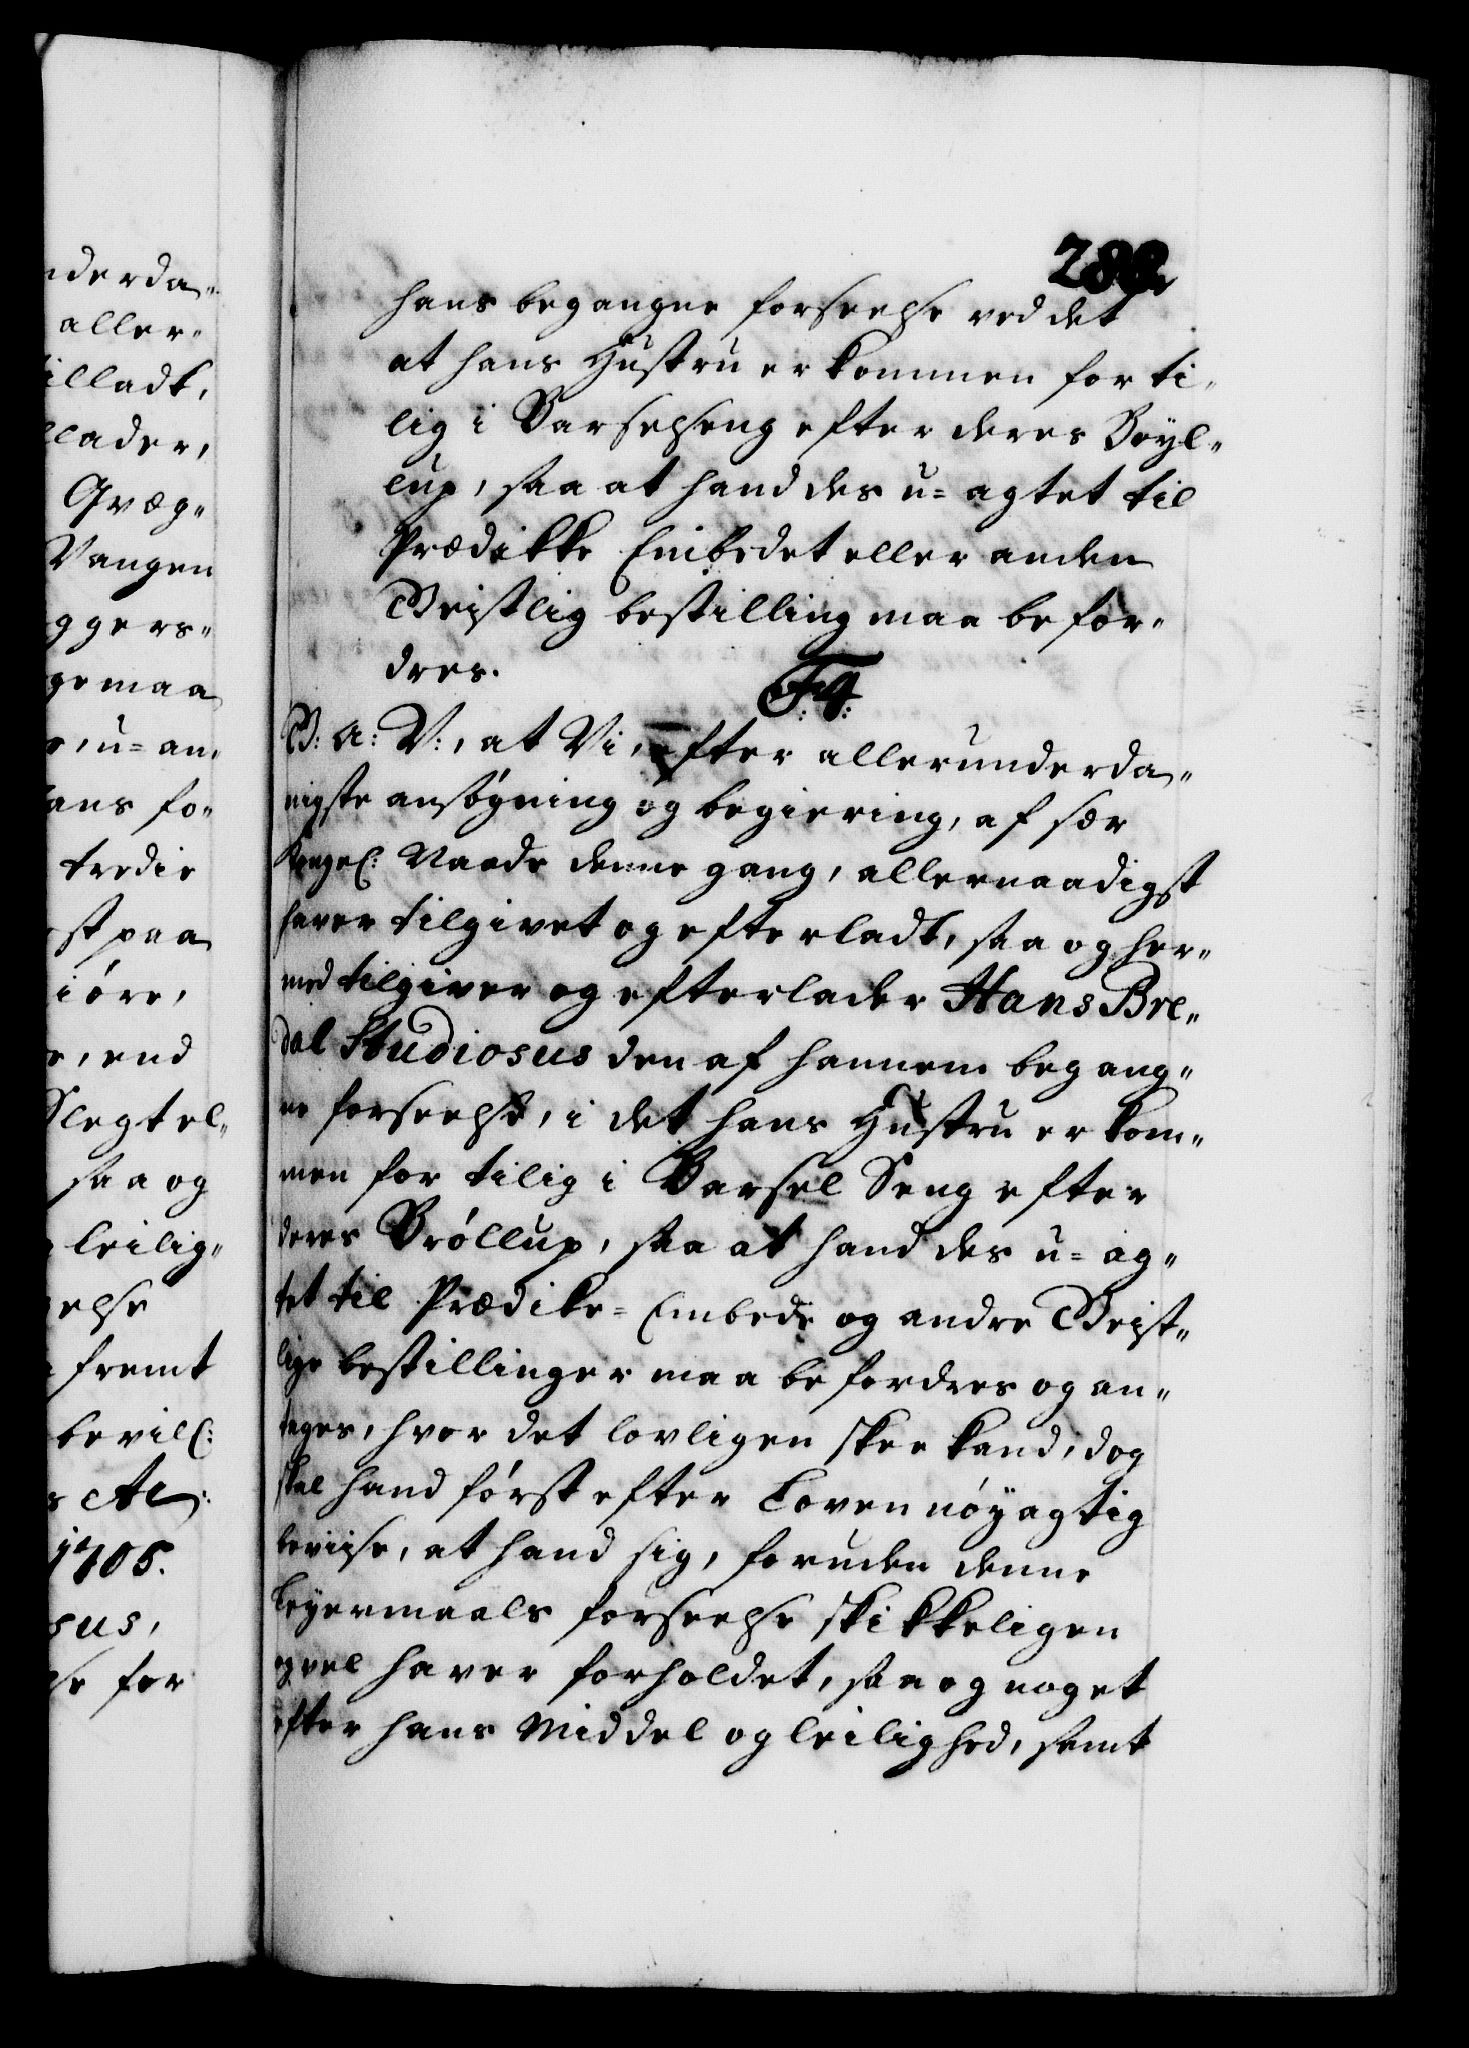 nderda„
aller„
tilladt,
llader,
Qvæg„
Vangen
ggers„
ge maa
u=an„
ans fo„
tredie
st paa
iøre,
end
Slegtel„
saa og
leilig„
else
fremt
bevilℓ:
1705.
sus,
for
hans begangne forseelse ved det
at hans Hustru er kommen for ti„
lig i Barselseng efter deres Bryl„
lup, saa at hand des u=agtet til
Prædikke Embedet eller anden
Geistlig bestilling maa befor„
dres.
F4:
G: A: V:, at Vi, efter allerunderda„
nigste ansøgning og begiering, af sær
Kongel: Naade denne gang, allernaadigst
haver tilgivet og efterladt, saa og her„
med tilgiver og efterlader Hans Bre„
dal Studiosus den af hannem begang„
ne forseelse, i det hans Hustru er kom„
men for tilig i Barsel Seng efter
deres Brøllup, saa at hand des u=ag„
tet til Prædike=Embede og andre Geist„
lige bestillinger maa befordres og an„
tages, hvor det lovligen skee kand, dog
skal hand først efter Loven nøyagtig
beviise, at hand sig, foruden denne
Leyermaals forseelse skikkeligen
og vel haver forholdet, saa og noget
efter hans Middel og leilighed, samt